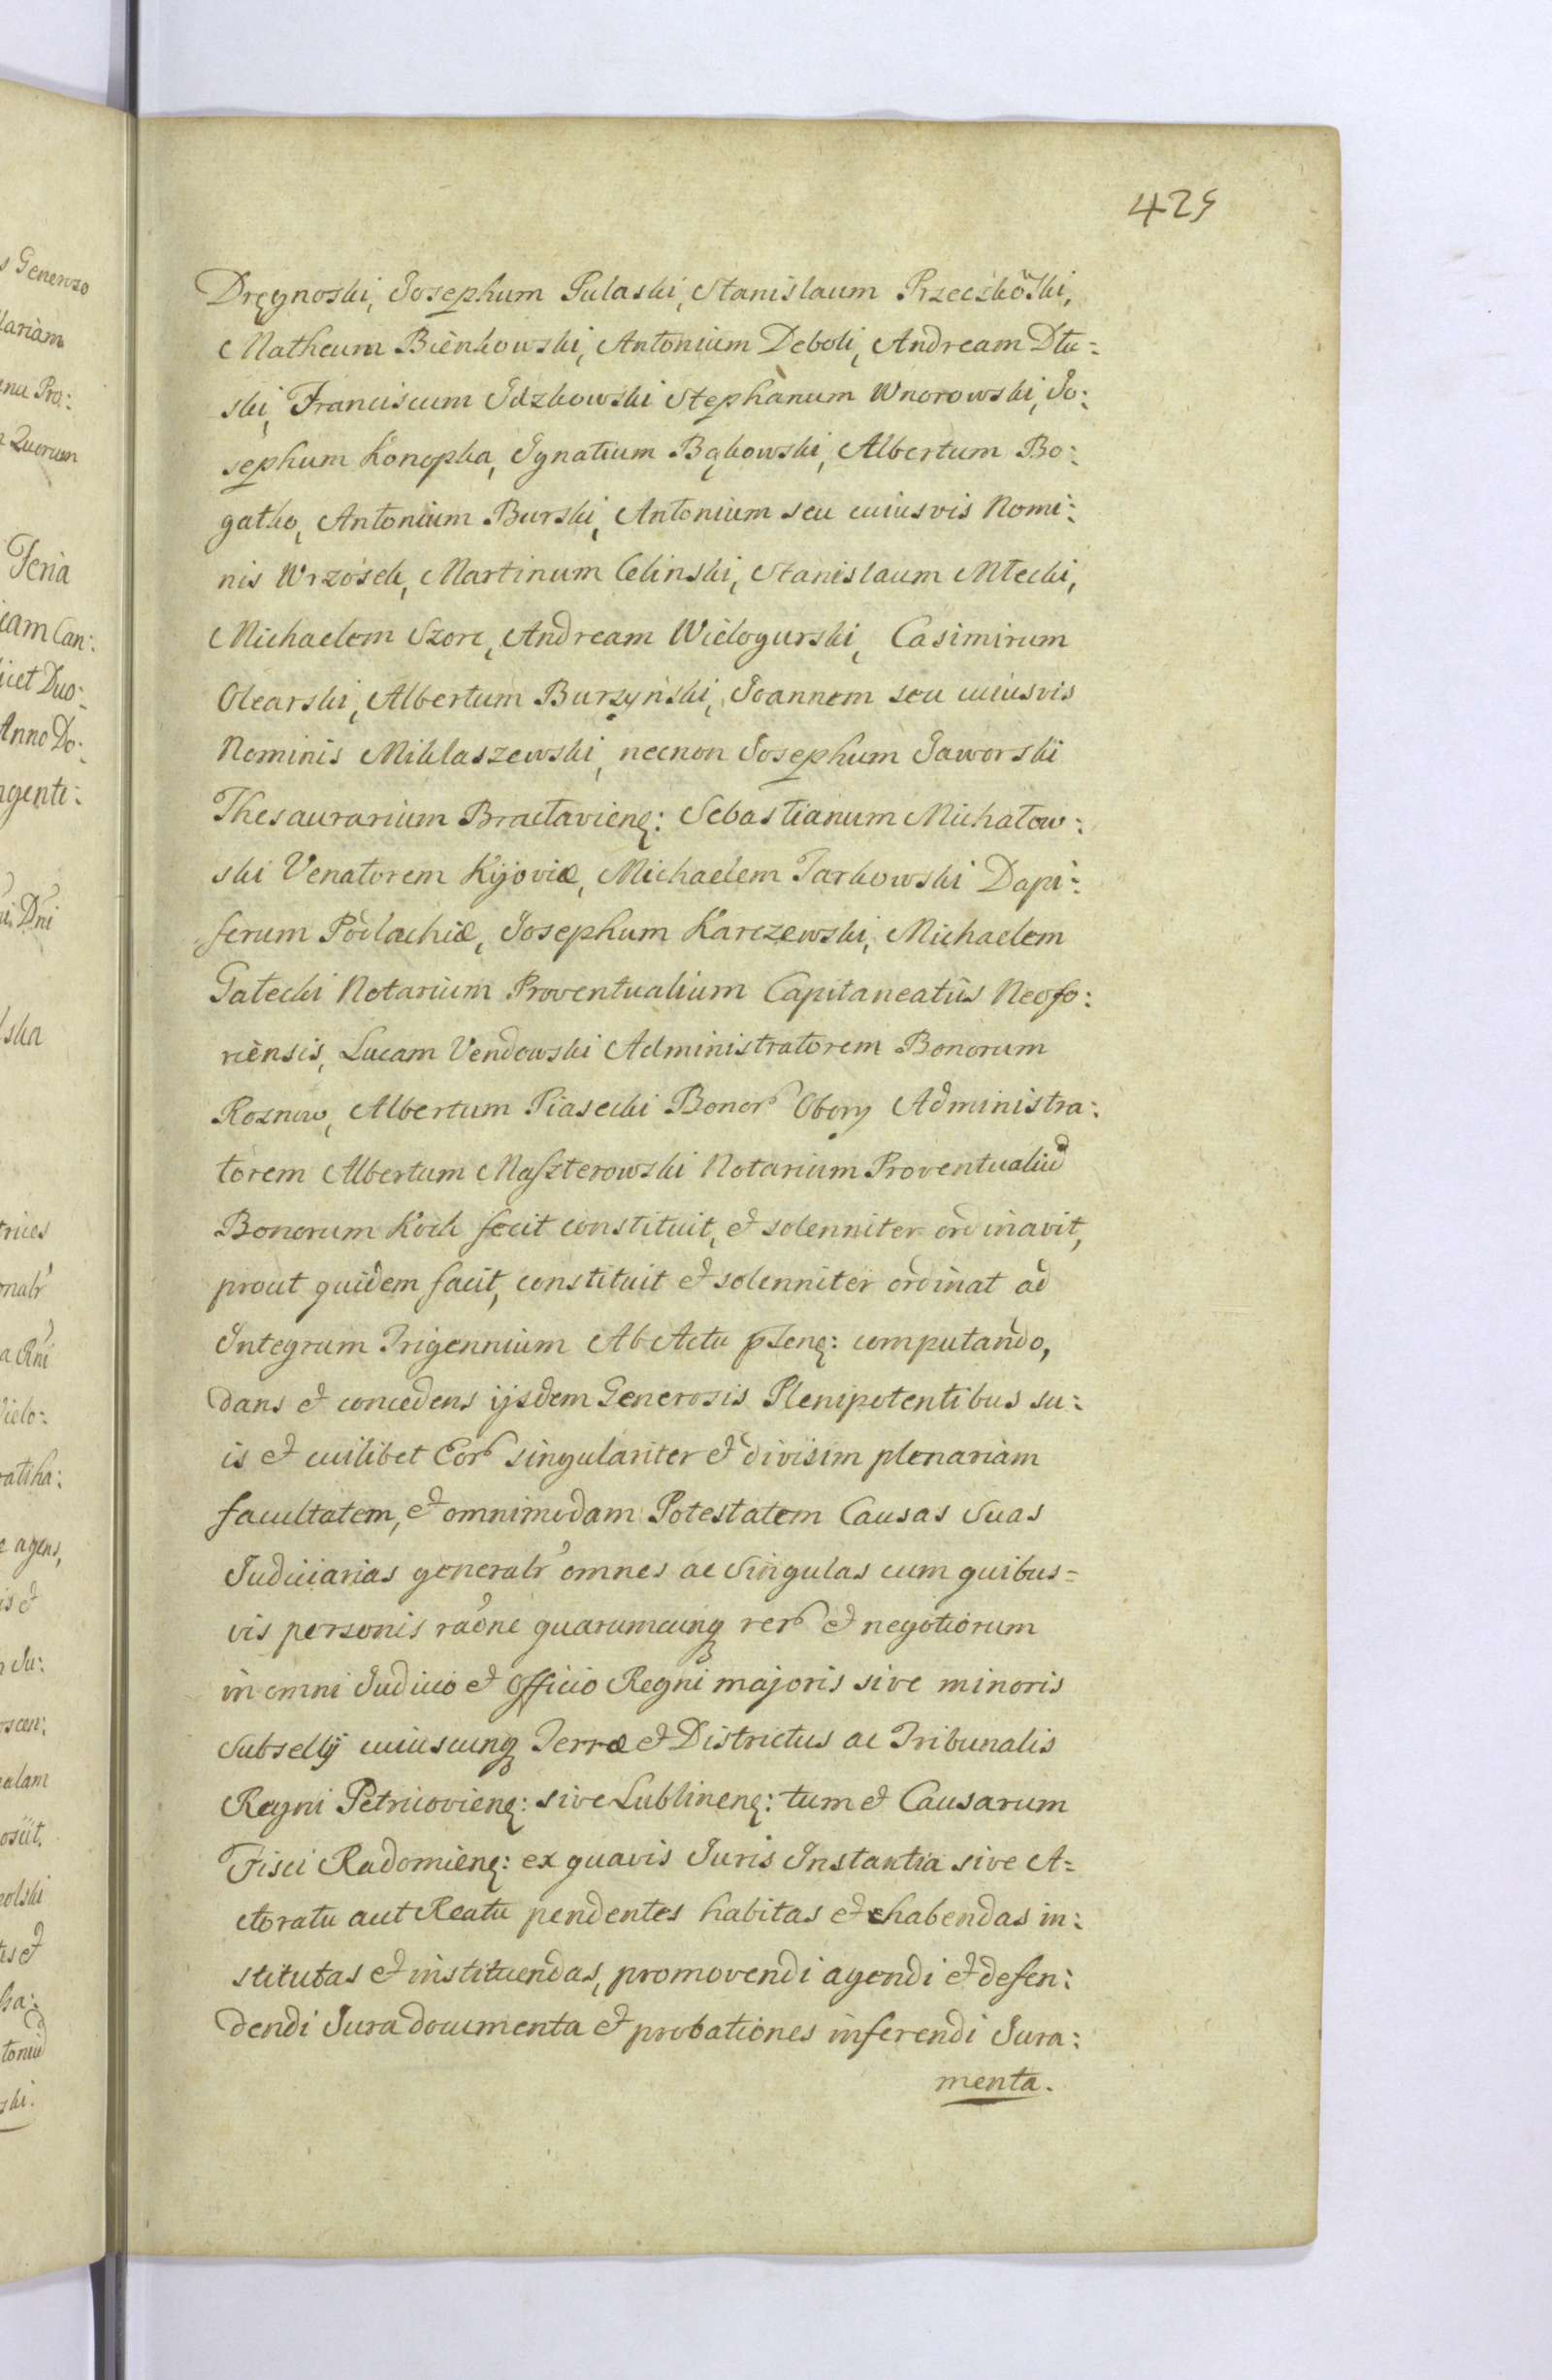 425
Dręgnoski, Josephum Pulaski, Stanislaum Przeczkoski,
Matheum Bienkowski, Antonium Deboli, Andream Dłu=
ski, Franciscum Idzkowski Stephanum Wnorowski, Jo:
sephum Konopka, Ignatium Bąkowski, Albertum Bo:
gatko, Antonium Burski, Antonium seu cuiusvis Nomi:
nis Wrzosek, Martinum Celinski, Stanislaum Młecki,
Michaelem Szorc, Andream Wielogurski, Casimirum
Olearski, Albertum Burzyński, Joannem seu cuiusvis
Nominis Miklaszewski, necnon Josephum Jaworski
Thesaurarium Braclavienę: Sebastianum Michałow:
ski Venatorem Kijoviæ, Michaelem Tarkowski Dapi:
ferum Podlachiæ, Josephum Karczewski, Michaelem
Gałecki Notarium Proventualium Capitaneatus Neofo:
riensis, Lucam Vendowski Administratorem Bonorum
Roznow, Albertum Piasecki Bonor Obory Administra:
torem Albertum Maszterowski Notarium Proventualiu
Bonorum Kock fecit constituit, et solenniter ordinavit,
prout quidem facit, constituit et solenniter ordinat ad
Integrum Trigennium Ab Actu pñtenę: computando,
dans et concedens ijsdem Generosis Plenipotentibus su:
is et cuilibet Eor singulariter et divisim plenariam
facultatem, et omnimodam Potestatem Causas Suas
Judiciarias generalr omnes ac Singulas cum quibus=
vis personis raone quarumcunq rer et negotiorum
in omni Judicio et Officio Regni majoris sive minoris
Subsellij cuiuscunq Terræ et Districtus ac Tribunalis
Regni Petricovienę: sive Lublinenę: tum et Causarum
Fisci Radomienę: ex quavis Juris Instantia sive A=
ctoratu aut Reatu pendentes habitas et habendas in:
stitutas et instituendas, promovendi agendi et defen:
dendi Jura documenta et probationes inferendi Jura:
menta.